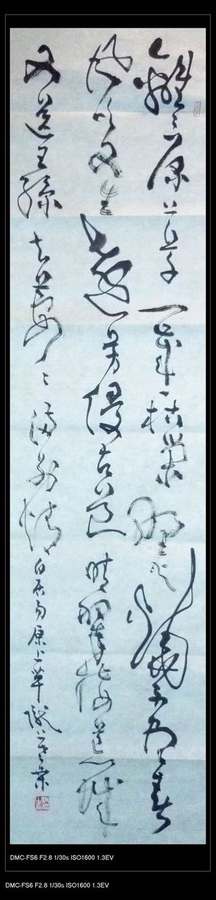 離〻原上草一歲一枯榮野火燒不盡春
風吹又生遠芳侵古道晴翠接荒城
又送王孫去萋〻滿別情白居易原上草
DMC-FS6 F2.8 1/30s ISO1600 1.3EV
DMC-FS6 F2.8 1/30s ISO1600 1.3EV